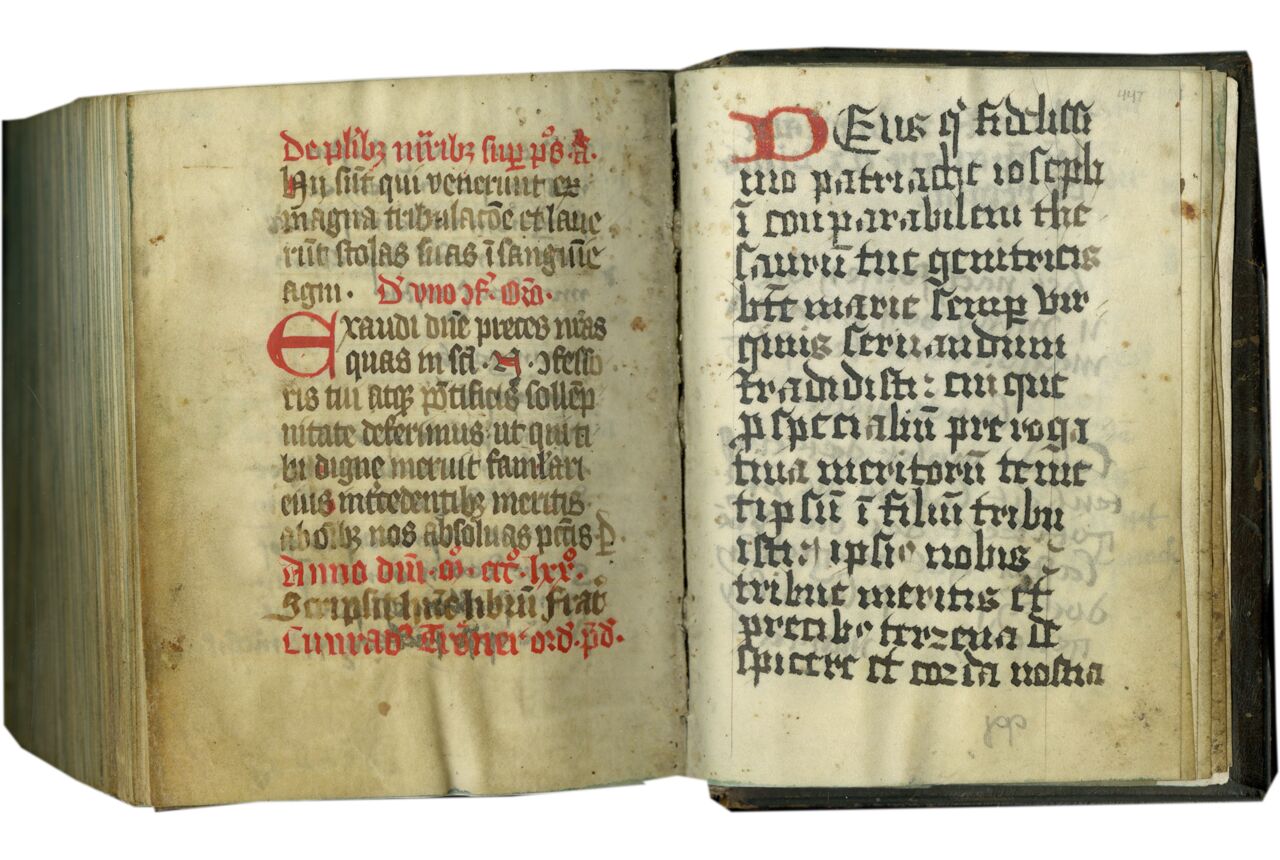 De plib⁊ mr̄ib⁊ sup̱ ps̊ a̅.
hii sūt qui venerunt ex
magna tribulacōe et laue
rūt stolas suas ī sanguīe
agni. D' vno ɔf'. Orō.
Exaudi dn̄e preces nr̄as
quas in sc̄i . N . ɔfesso
ris tui atq⁊ pōtificis sollēp
nitate deferimus ut qui ti
bi digne meruit famlari
eius int'cedentib⁊ meritis
ab oīb⁊ nos absoluas pcc̄is P
Anno dm̄i . mº . cccº . lxxº .
Scripsit hūc librū frat'
Cunrad⁹ ord' . p̄d' .
447
DEus q' fidelissi
mo patriarche ioseph
ī conparabilem the
saurū tue genitricis
bt̄e marie semp̱ vir
ginis seruandum
tradidisti : eiusque
p̱ specialiū preroga
tiua meritorū tenue
t ip̄sū ī filiū tribu
isti ipsiº nobis
tribue meritis et
precibº terrena de
spicere et corda nostra